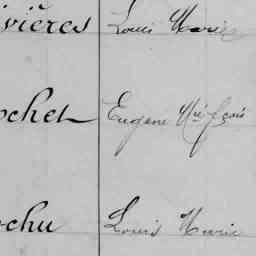 vières Louis Marie
ochet Eugène Mie fçois
ochu Louis Marie